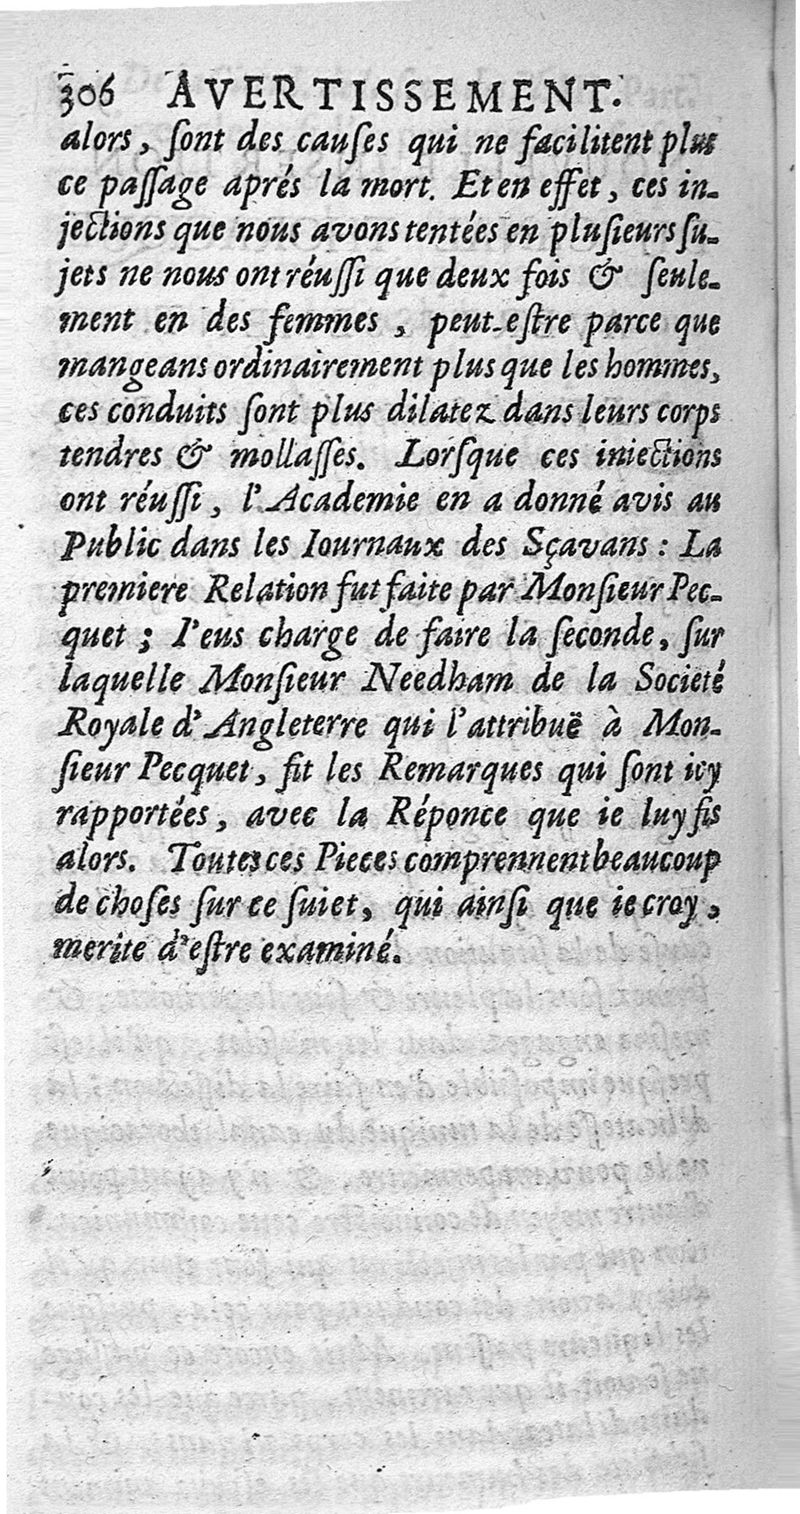 306 AVERTISSEMENT.
alors, ſont des cauſes qui ne facilitent plus
ce paſſage aprés la mort. Et en effet, ces in-
jections que nous avons tentées en pluſieurs ſu-
jets ne nous ont réuſſi que deux fois & ſeule-
ment en des femmes, peut-eſtre parce que
mangeans ordinairement plus que les hommes,
ces conduits ſont plus dilatez dans leurs corps
tendres & mollaſſes. Lorſque ces iniections
ont réuſſi, l'Academie en a donné avis au
Public dans les Iournaux des Sçavans : La
premiere Relation fut faite par Monſieur Pec-
quet ; I'eus charge de faire la ſeconde, ſur
laquelle Monſieur Needham de la Societé
Royale d'Angleterre qui l'attribuë à Mon-
ſieur Pecquet, fit les Remarques qui ſont icy
rapportées, avec la Réponce que ie luy fis
alors. Toutes ces Pieces comprennent beaucoup
de choſes ſur ce ſuiet, qui ainſi que ie croy,
merite d'eſtre examiné.